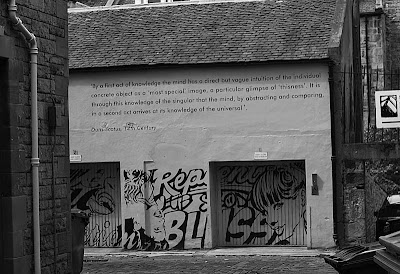 "By a first act of knowledge the mind has a direct but vague intuition of the individual
concrete object as a 'most special' image, a particular glimpse of 'thisness'. It is
through this knowledge of the singular that the mind, by abstracting and comparing,
in a second act arrives at its knowledge of the universal".
Duns Scotus, Century
BLISS